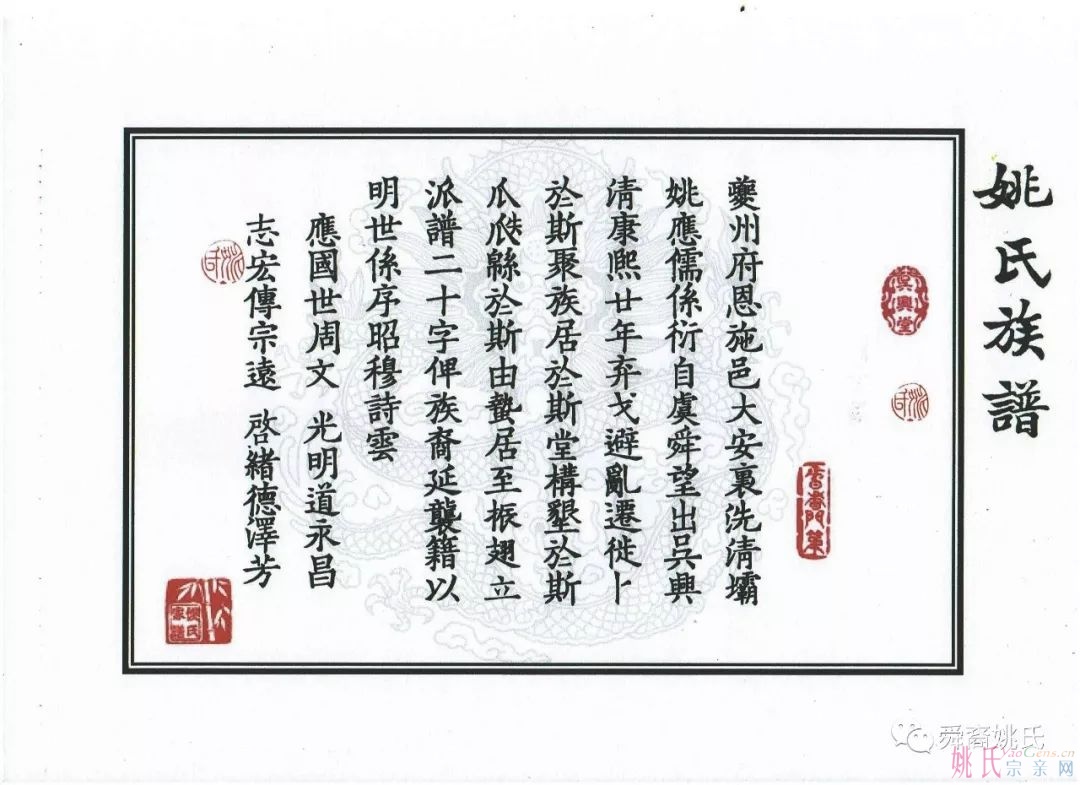 姚氏族譜
吳興堂
夔州府恩施邑大安裏洗清壩
姚應儒係衍自虞舜望出吳興
清康熙廿年弃戈避亂遷徙卜
於斯聚族居於斯堂構墾於斯
瓜瓞緜於斯由蟄居至振翅立
派譜二十字俾族裔延襲籍以
明世係序昭穆詩雲
應國世周文 光明道永昌
志宏傳宗遠 啓緒德澤芳
姚氏家譜
舜裔姚氏
YaoGens.cn
姚氏宗亲网